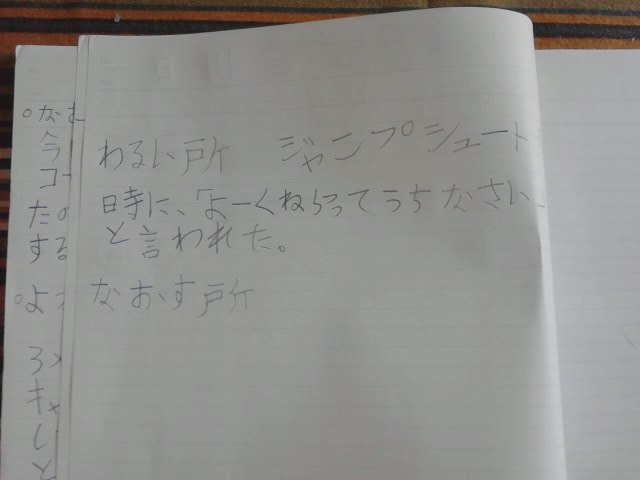 わるい所 ジャンプシュート
時に、「よーくねらってうちなさい、
と言われた。
なおす所
○なお
今
コー
たの
する
○よ
ろ
キャ
し
と